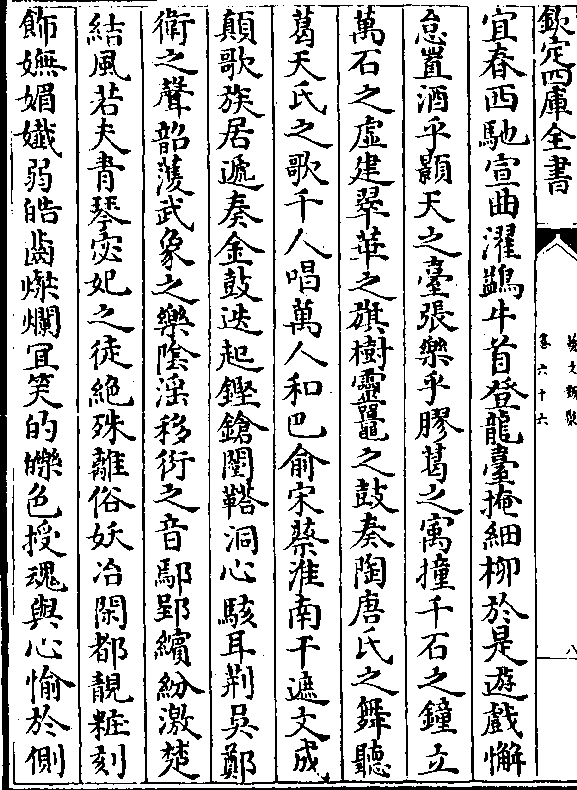 欽定四庫全書
藝文類聚
卷六十六
八
宜春西馳宣曲濯鷁牛首登龍臺掩細柳於是遊戲懈
怠置酒乎顥天之臺張樂乎膠葛之㝢撞千石之鐘立
萬石之虛建翠華之旗樹靈鼉之鼓奏陶唐氏之舞聽
葛天氏之歌千人唱萬人和巴俞宋蔡淮南干遮文成
顛歌族居遞奏金鼓迭起鏗鎗闛鞳洞心駭耳荆吳鄭
衛之聲韶濩武象之樂陰淫移衍之音鄢郢繽紛激楚
結風若夫青琴宓妃之徒絶殊離俗妖冶閑都靚粧刻
飾嫵媚孅弱皓齒燦爛宜笑的皪色授魂與心愉於側